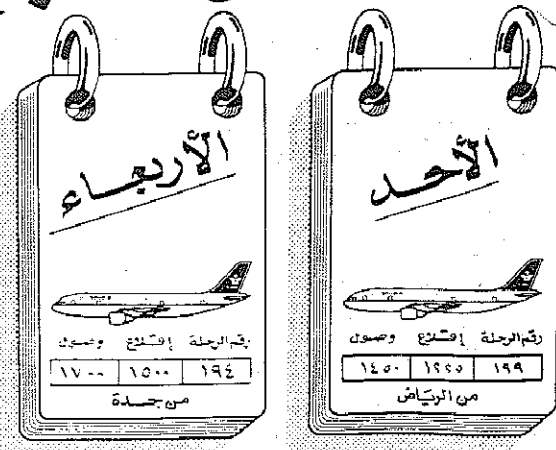 الأحد
رقم الرحلة إقلاع وصول
١٩٩ ١٢٢٥ ١٤٥٠
من الرياض
الأربعاء
رقم الرحلة إقلاع وصول
١٩٤ ١٥٠٠ ١٧٠٠
من جدة